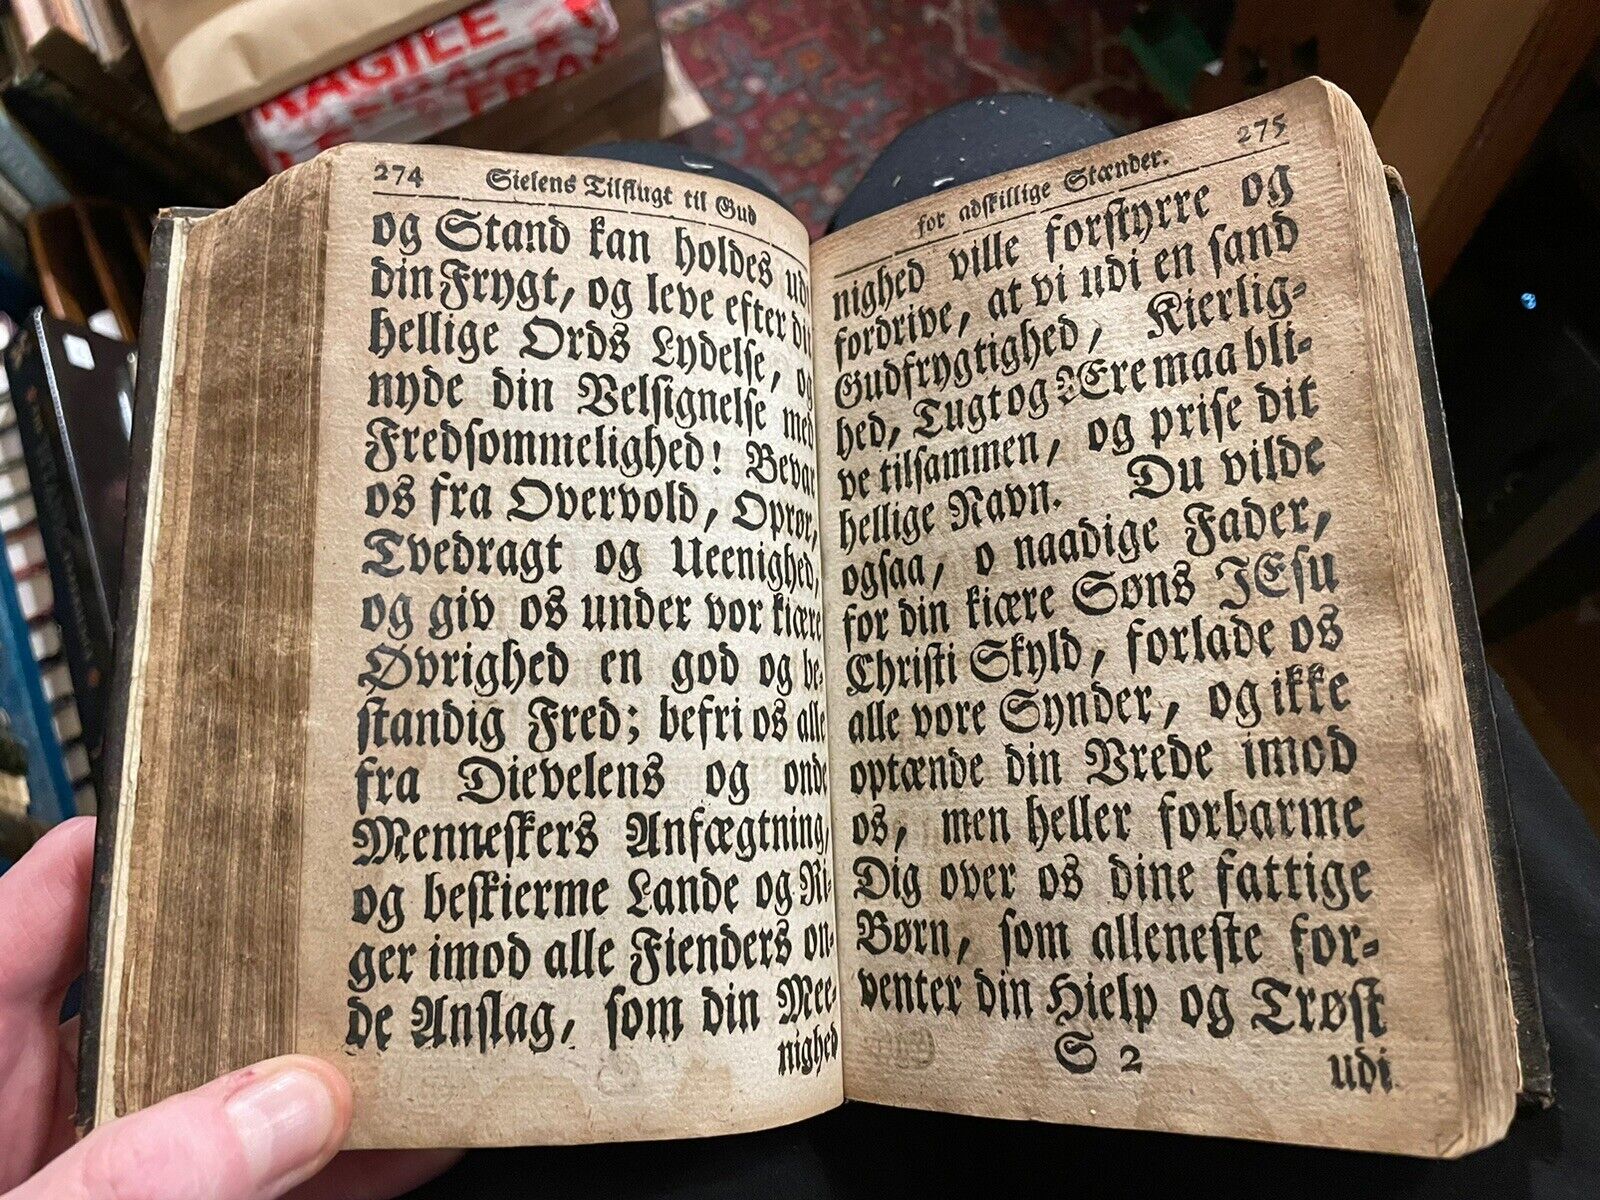 FRAGILE
274
Sielens Tilflugt til Gud
og Stand kan holdes udi
din Frygt, og leve efter dit
hellige Ords Lydelse, og
nyde din Velsignelse med
Fredsommelighed! Bevar
os fra Overvold, Oprør,
Tvedragt og Ueenighed,
og giv os under vor kiære
Øvrighed en god og be-
standig Fred; befri os alle
fra Dievelens og onde
Menneskers Anfægtning,
og beskierme Lande og Ri-
ger imod alle Fienders on-
de Anslag, som din Mee-
nighed
for adskillige Stænder.
275
nighed ville forstyrre og
fordrive, at vi udi en sand
Gudfrygtighed, Kierlig-
hed, Tugt og Ære maa bli-
ve tilsammen, og prise dit
hellige Navn. Du vilde
ogsaa, o naadige Fader,
for din kiære Søns JEsu
Christi Skyld, forlade os
alle vore Synder, og ikke
optænde din Vrede imod
os, men heller forbarme
Dig over os dine fattige
Børn, som alleneste for-
venter din Hielp og Trøst
S 2
udi